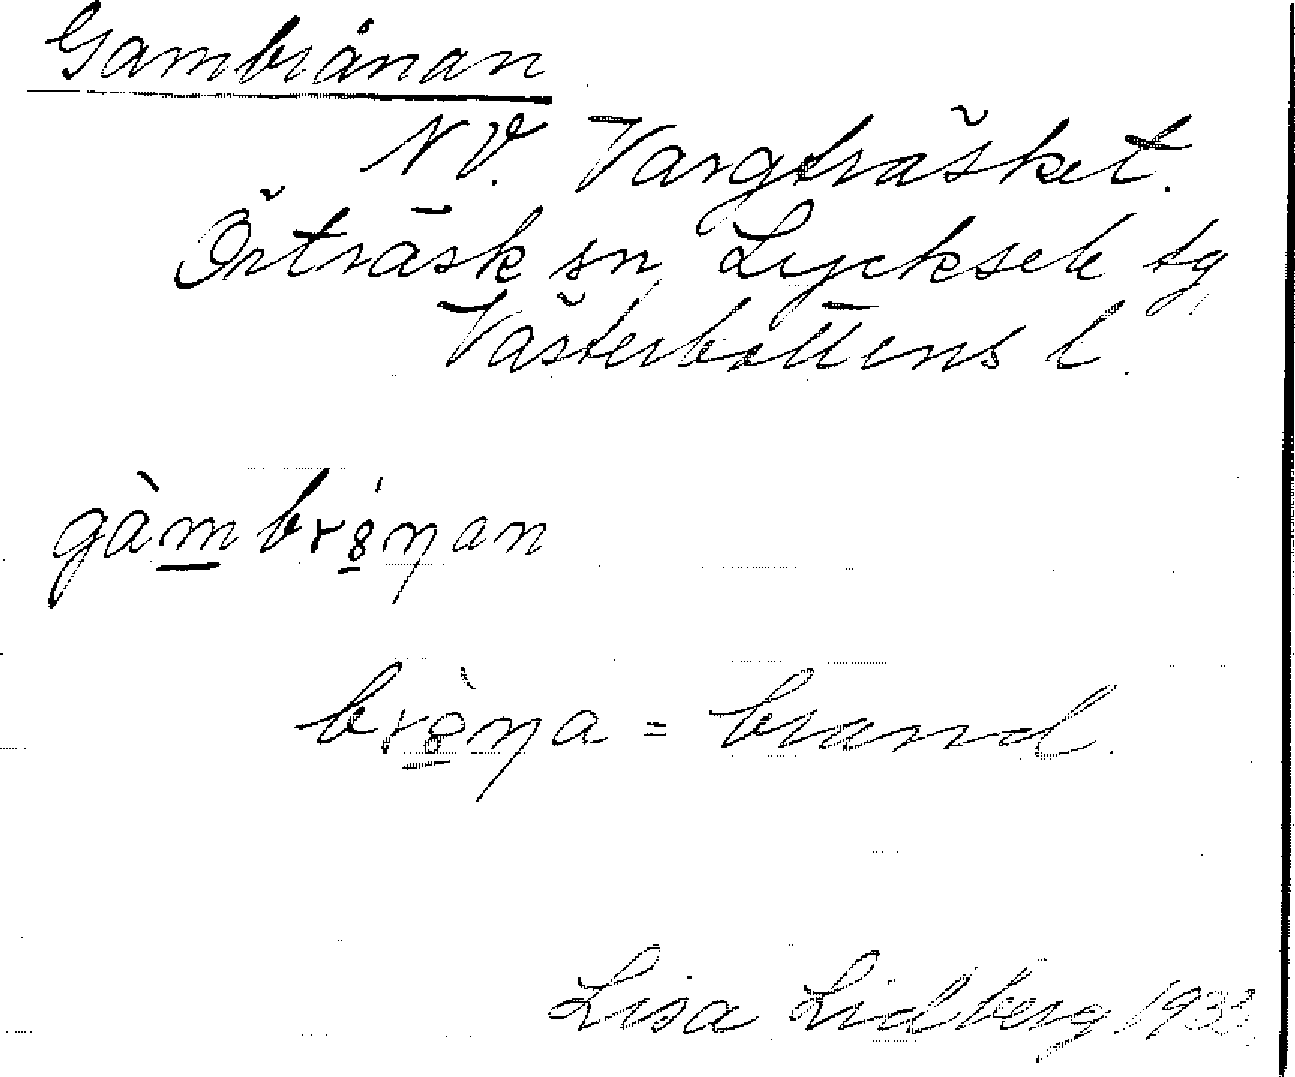 Gambrånan
N.V. Vargträsket.
Örträsk sn, Lycksele tg,
Västerbottens l.
gàm brȯ́ŋan
brò̱ŋa = brand.
Lisa Lidberg 1933